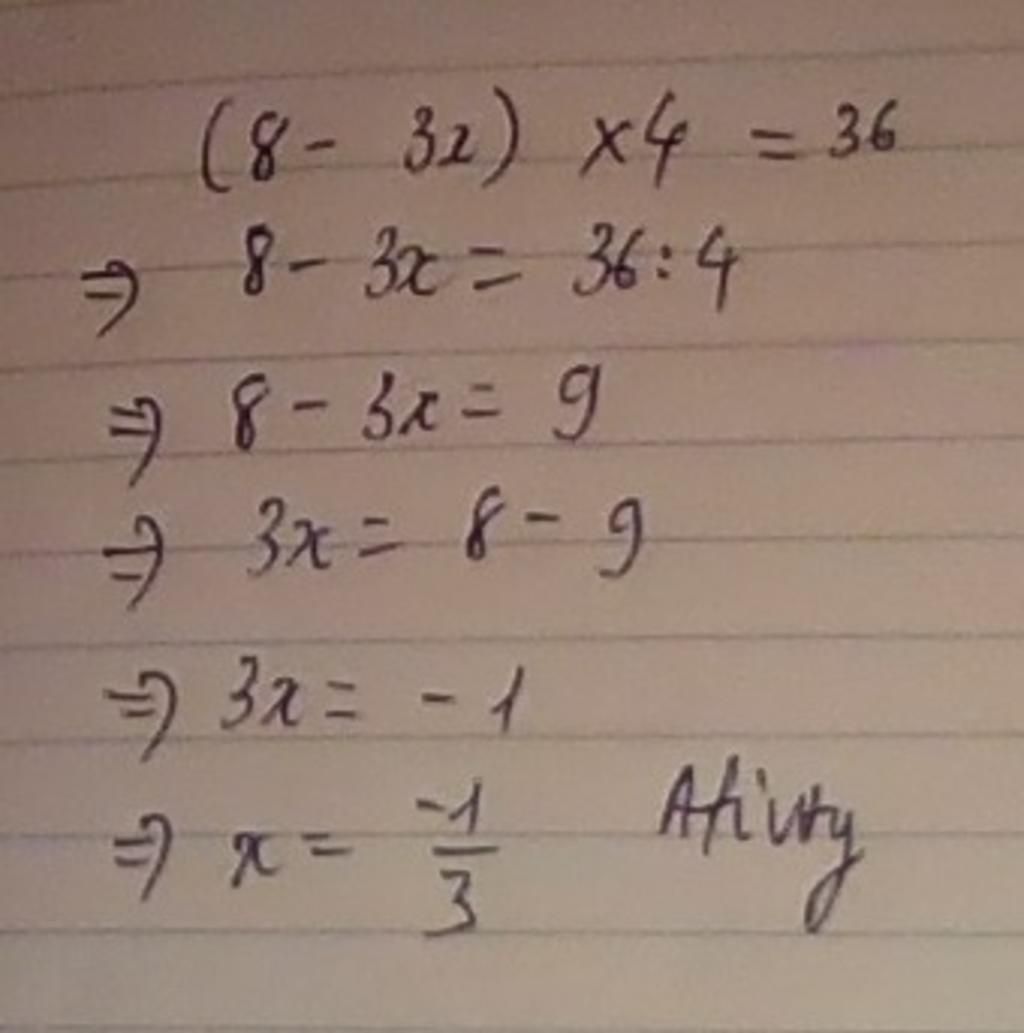 (8 - 3x) ×4 = 36
⇒ 8 - 3x = 36 : 4
⇒ 8 - 3x = 9
⇒ 3x = 8 - 9
⇒ 3x = -1
⇒ x = -1/3